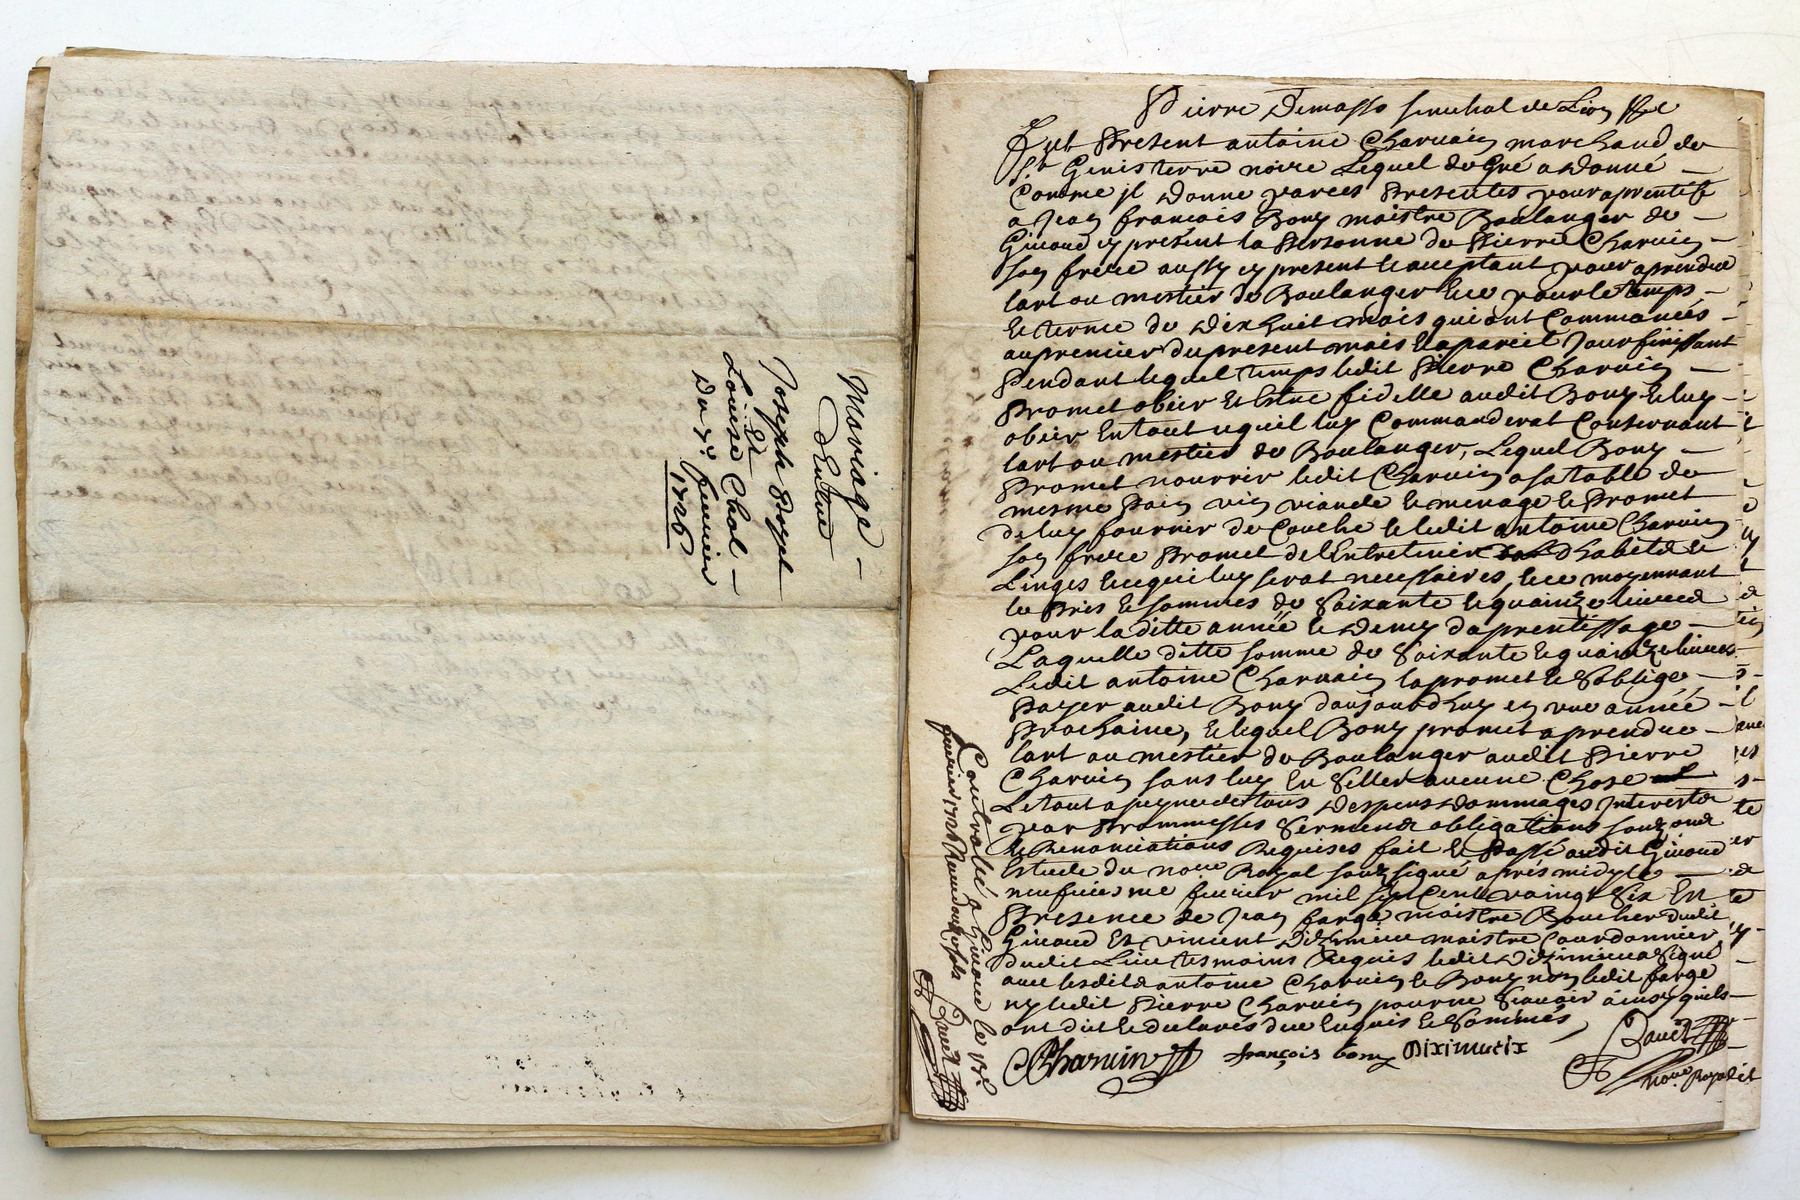 Mariage -
Entre
Joseph
Et
Louise Chol -
Du 7e. feuvrier
1726
Pierre Demasso senechal de Lion
fut Present antoine Charvin marchand de
st Genis terre noire Lequel de Gré a donné -
Comme jl donne par ces Presentes pour aprentif
a Jean francois Bony maistre Boulanger de -
Givord cy présent la Personne de Pierre Charvin -
son frere aussy cy present et aceptant pour aprendre
lart ou mestier de Boulanger et ce pour le temps -
Et terme de Dix huit mois qui ont Commancés -
au premier du present mois et a pareil Jour finissant
Pendant lequel temps ledit Pierre Charvin -
Promet obeir Et Estre fidelle audit Bony Et luy -
obeir En tout ce quil luy Commanderat Consernant
lart ou mestier de Boulanger, Lequel Bony -
Promet nourrir ledit Charvin a sa table de
mesme Pain vin viande et menage et Promet
de luy fournir de Couche et ledit antoine Charvin
son frere Promet de l'Entretenir dhabits et
Linges et ce qui luy serat necessaires, et ce moyennant
le Pris et sommes de Soixante et quainze livres
pour la ditte année et Demy daprentissage -
Laquelle ditte somme de Soixante et quainze livres
Ledit antoine Charvin la promet et Soblige -
Payer audit Bony daujourdhuy en une année -
Prochaine, et lequel Bony promet aprendre -
lart ou mestier de Boulanger audit Pierre
Charvin sans luy En Seller aucune Chose
Le tout a peyne de tous Despens dommages Interests
par Prommesses Serments obligations
et Renonciations Requises fait et Passé audit Givord
Estude du nore Royal souzsigné apres midy le -
neufviesme feuvrier mil sept Cent vaingt Six En
Presence de Jean farge maistre Boucher dudit
Givord Et vincent maistre Courdonnier
dudit Lieu tesmoins Requis ledit signé
avec lesdits antoine Charvin et Bony non ledit farge
ny ledit Pierre Charvin pour ne Scavoir ainsy quils -
ont dit et declarés due Enquis et Sommés
Charvin françois bony Diximieix
nore Royal
Controllé a Givord le
feuvrier 1726 Receu douze sols